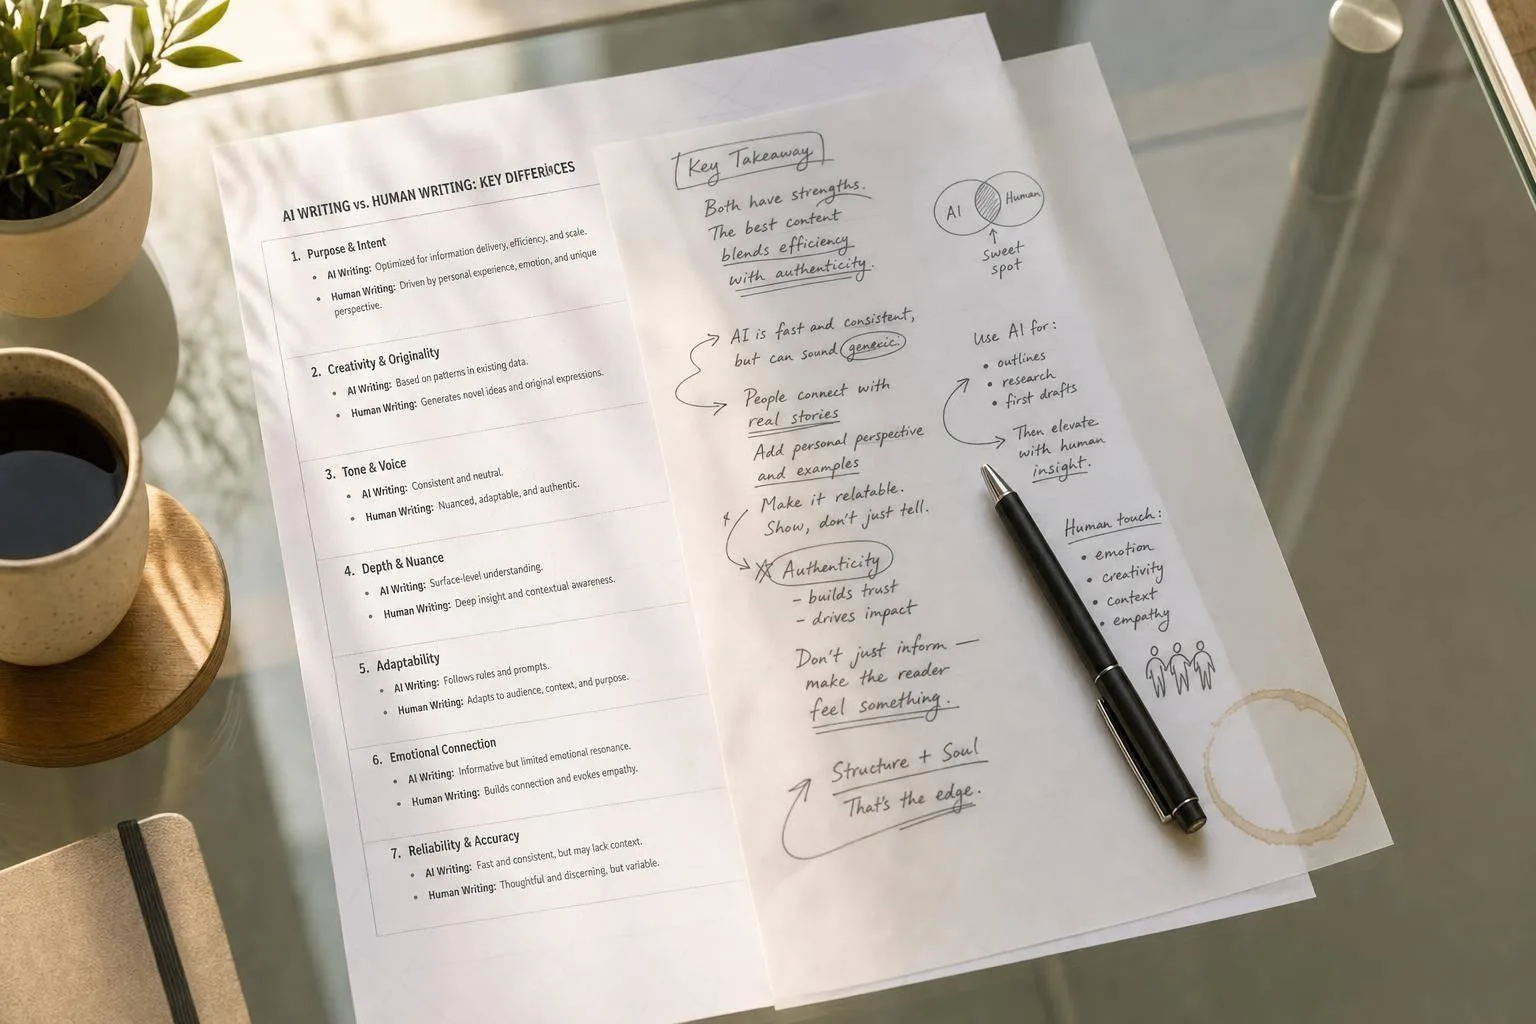 AI WRITING vs. HUMAN WRITING: KEY DIFFERENCES
1. Purpose & Intent
• AI Writing: Optimized for information delivery, efficiency, and scale.
• Human Writing: Driven by personal experience, emotion, and unique
perspective.
2. Creativity & Originality
• AI Writing: Based on patterns in existing data.
• Human Writing: Generates novel ideas and original expressions.
3. Tone & Voice
• AI Writing: Consistent and neutral.
• Human Writing: Nuanced, adaptable, and authentic.
4. Depth & Nuance
• AI Writing: Surface-level understanding.
• Human Writing: Deep insight and contextual awareness.
5. Adaptability
• AI Writing: Follows rules and prompts.
• Human Writing: Adapts to audience, context, and purpose.
6. Emotional Connection
• AI Writing: Informative but limited emotional resonance.
• Human Writing: Builds connection and evokes empathy.
7. Reliability & Accuracy
• AI Writing: Fast and consistent, but may lack context.
• Human Writing: Thoughtful and discerning, but variable.
Key Takeaway
Both have strengths.
The best content
blends efficiency
with authenticity.
AI is fast and consistent,
but can sound generic.
People connect with
real stories
Add personal perspective
and examples
Make it relatable.
Show, don't just tell.
Authenticity
- builds trust
- drives impact
Don't just inform —
make the reader
feel something.
Structure + Soul
That's the edge.
AI Human
Sweet
spot
Use AI for:
• outlines
• research
• first drafts
Then elevate
with human
insight.
Human touch:
• emotion
• creativity
• context
• empathy